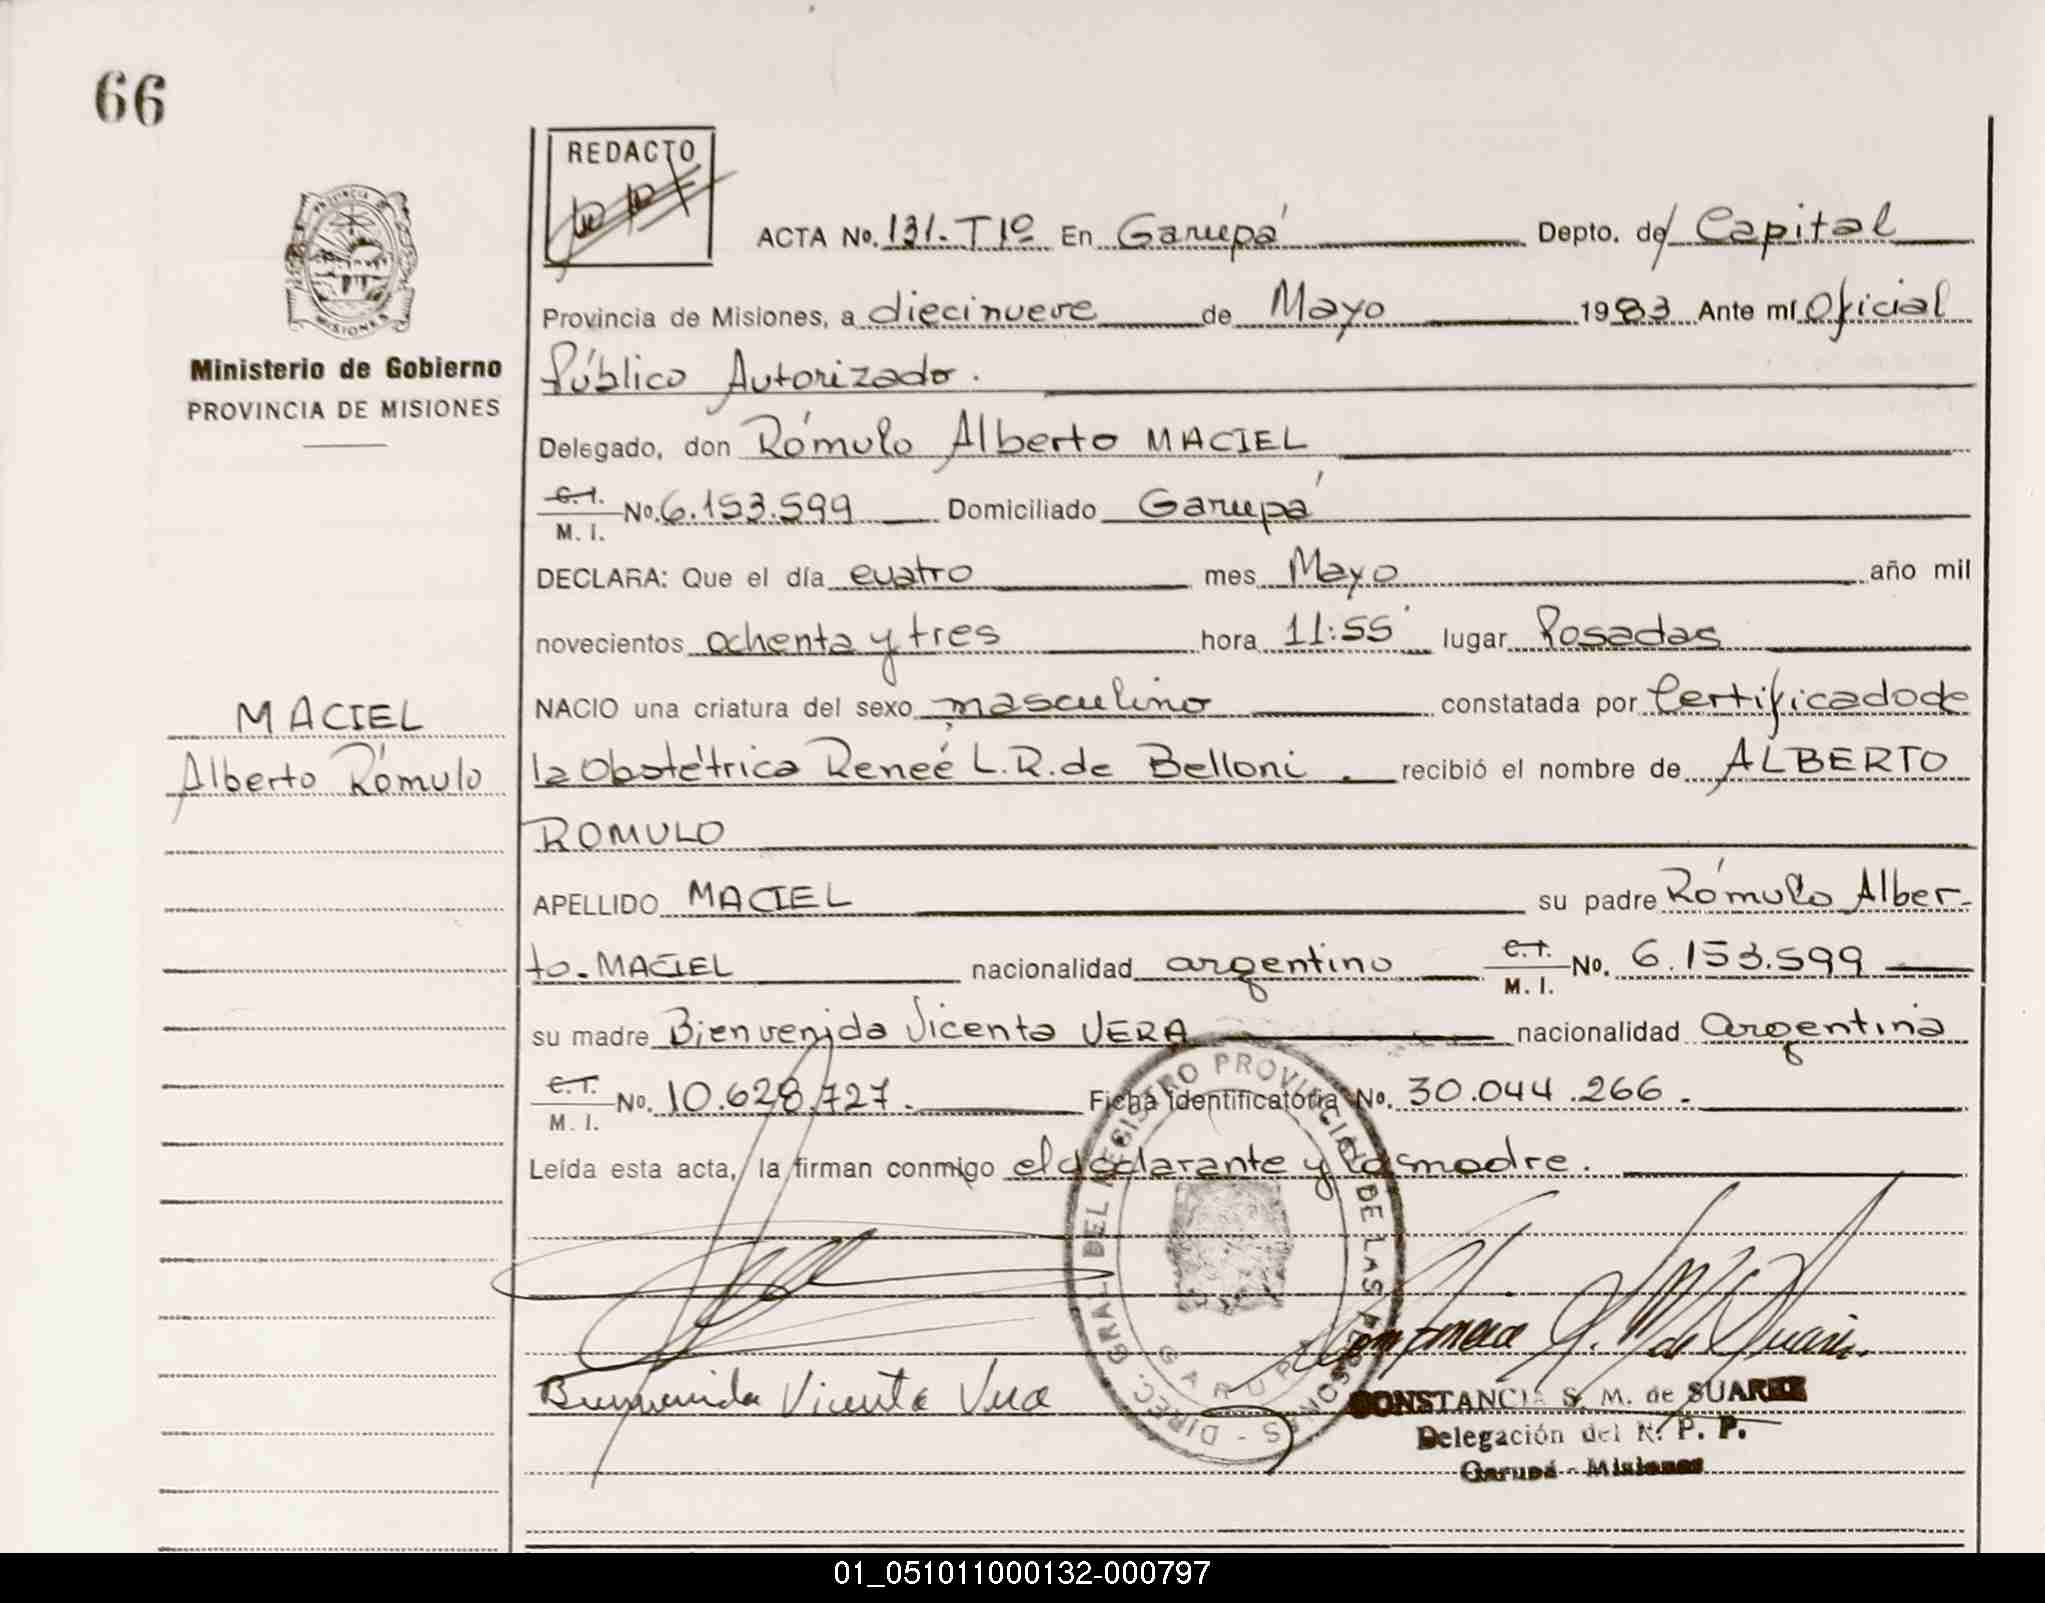 66
REDACTO
PROVINCIA DE
MISIONES
ACTA No. 131. T1º En Garupá Depto. de Capital
Provincia de Misiones, a diecinueve de Mayo 1983 Ante mí Oficial
Ministerio de Gobierno
PROVINCIA DE MISIONES
Público Autorizado.
Delegado, don Rómulo Alberto MACIEL
C.I.
M. I. No. 6.153.599 Domiciliado Garupá
DECLARA: Que el día cuatro mes Mayo año mil
novecientos ochenta y tres hora 11:55 lugar Posadas
MACIEL
Alberto Rómulo
NACIO una criatura del sexo masculino constatada por Certificado de
la Obstétrica Reneé L.R. de Belloni. recibió el nombre de ALBERTO
ROMULO
APELLIDO MACIEL su padre Rómulo Alber-
to. MACIEL nacionalidad argentino C.I. M. I. No. 6.153.599
su madre Bienvenida Vicenta VERA nacionalidad argentina
C.I.
M. I. No. 10.628.727. Ficha identificatoria No. 30.044.266.
Leída esta acta, la firman conmigo el declarante y la madre.
DIREC. GRAL DEL REGISTRO PROVINCIAL DE LAS PERSONAS -
GARUPA
Bienvenida Vicenta Vera
Constancia S. M. de Suarez
CONSTANCIA S. M. de SUAREZ
Delegación del R. P. P.
Garupá - Misiones
01_051011000132-000797